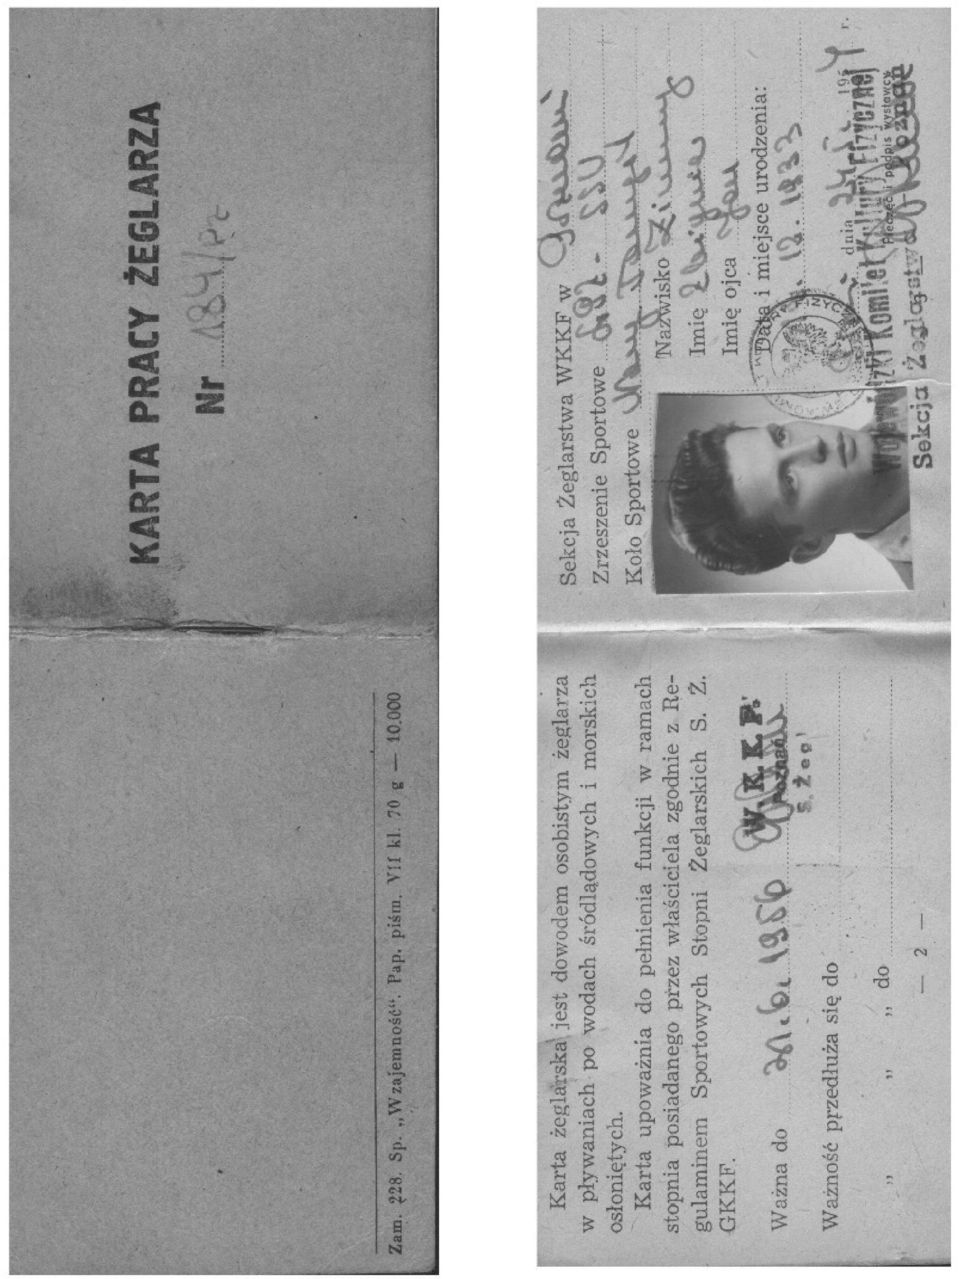 KARTA PRACY ŻEGLARZA
Nr 184/Pz
Zam. 228. Sp. „Wzajemność“. Pap. piśm. VII kl. 70 g — 10.000
Karta żeglarska jest dowodem osobistym żeglarza
w pływaniach po wodach śródlądowych i morskich
osłoniętych.
Karta upoważnia do pełnienia funkcji w ramach
stopnia posiadanego przez właściciela zgodnie z Re-
gulaminem Sportowych Stopni Żeglarskich S. Ż.
GKKF.
Ważna do 31.6.1956
W. K. K. F.
Poznań
S. Żegl
Ważność przedłuża się do
„ „ do
— 2 —
Sekcja Żeglarstwa WKKF w Poznaniu
Zrzeszenie Sportowe
Koło Sportowe
Nazwisko Zimny
Imię Zbigniew
Imię ojca Jan
Data i miejsce urodzenia:
12.1933
dnia 195 4 r.
Pieczęć i podpis wystawcy
Wojewódzki Komitet Kultury Fizycznej
Sekcja Żeglarstwa Poznań